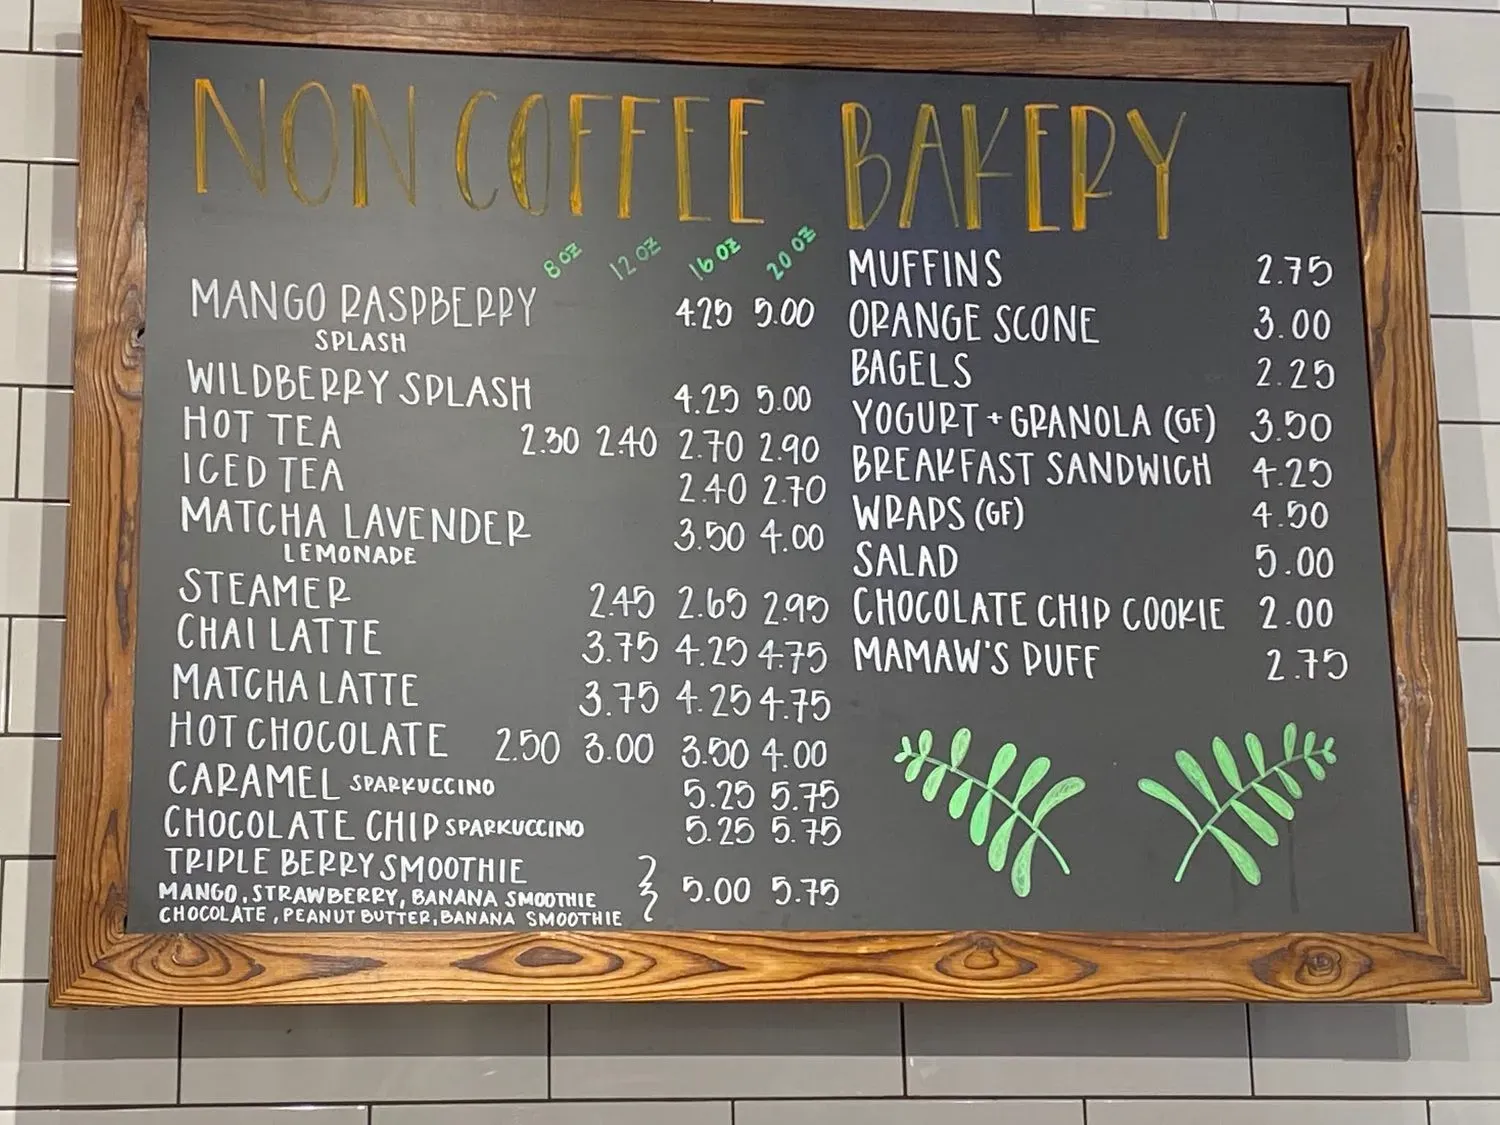 NON COFFEE
8 OZ 12 OZ 16 OZ 20 OZ
MANGO RASPBERRY 4.25 5.00
SPLASH
WILDBERRY SPLASH 4.25 5.00
HOT TEA 2.30 2.40 2.70 2.90
ICED TEA 2.40 2.70
MATCHA LAVENDER 3.50 4.00
LEMONADE
STEAMER 2.45 2.65 2.95
CHAI LATTE 3.75 4.25 4.75
MATCHA LATTE 3.75 4.25 4.75
HOT CHOCOLATE 2.50 3.00 3.50 4.00
CARAMEL SPARKUCCINO 5.25 5.75
CHOCOLATE CHIP SPARKUCCINO 5.25 5.75
TRIPLE BERRY SMOOTHIE
MANGO, STRAWBERRY, BANANA SMOOTHIE 5.00 5.75
CHOCOLATE, PEANUT BUTTER, BANANA SMOOTHIE
BAKERY
MUFFINS 2.75
ORANGE SCONE 3.00
BAGELS 2.25
YOGURT + GRANOLA (GF) 3.50
BREAKFAST SANDWICH 4.25
WRAPS (GF) 4.50
SALAD 5.00
CHOCOLATE CHIP COOKIE 2.00
MAMAW'S PUFF 2.75